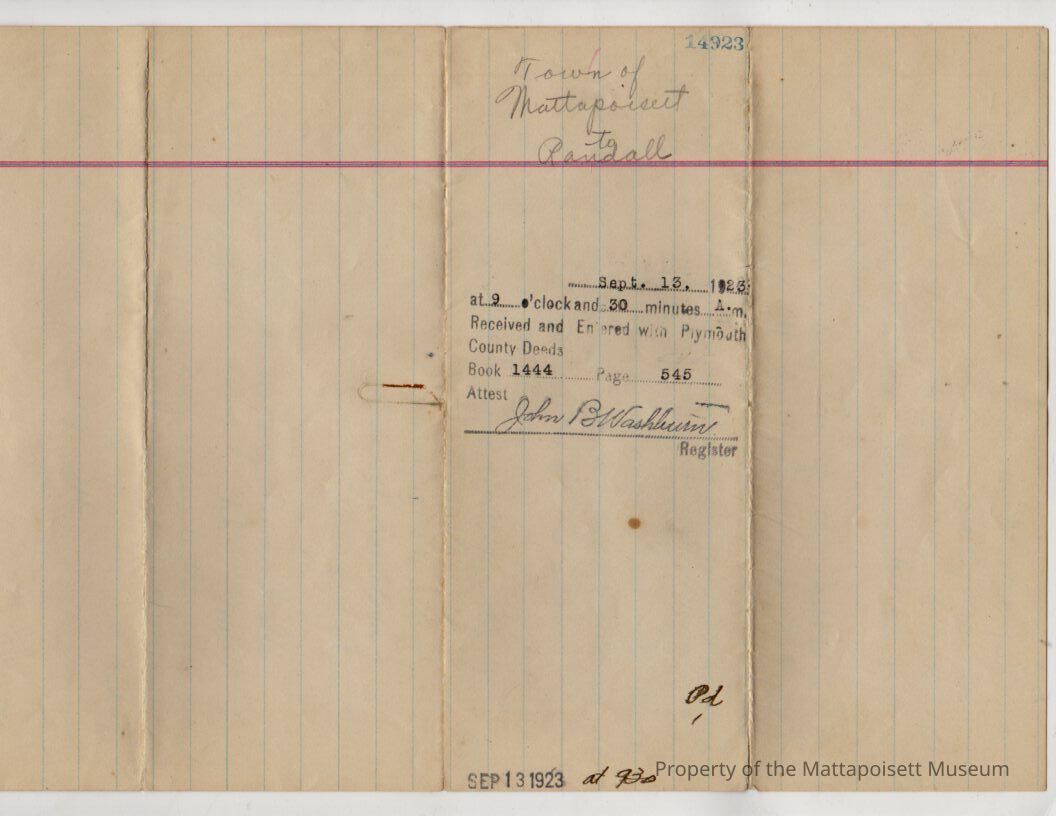 14923
Town of
Mattapoisett
to
Randall
Sept. 13, 1923
at 9 o'clock and 30 minutes A.m.
Received and Entered with Plymouth
County Deeds
Book 1444 Page 545
Attest
John B Washburn
Register
Pd
SEP 13 1923 at 930
Property of the Mattapoisett Museum